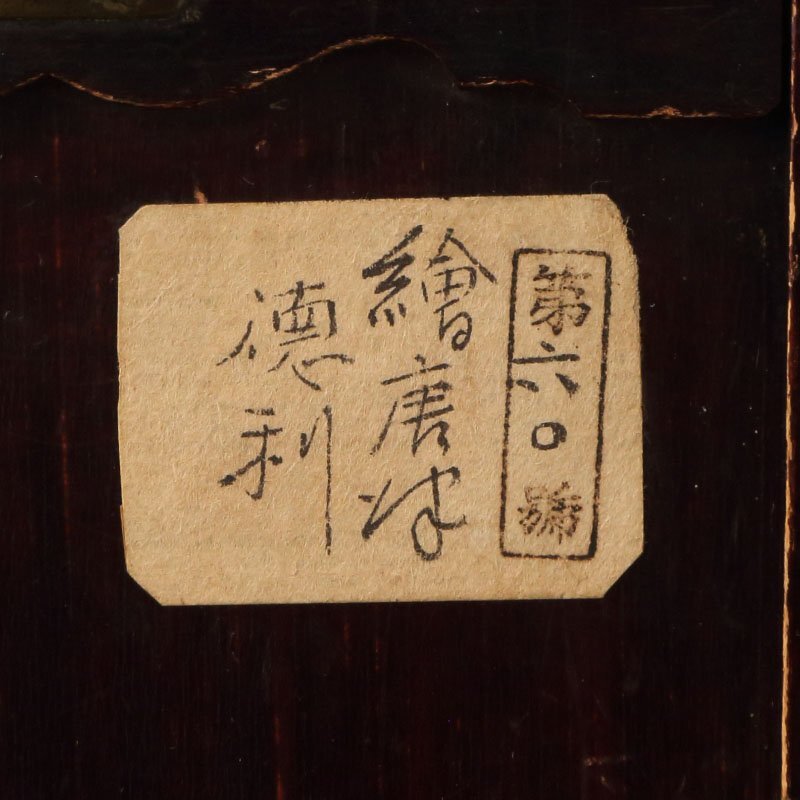 第六〇號
繪唐津
德利